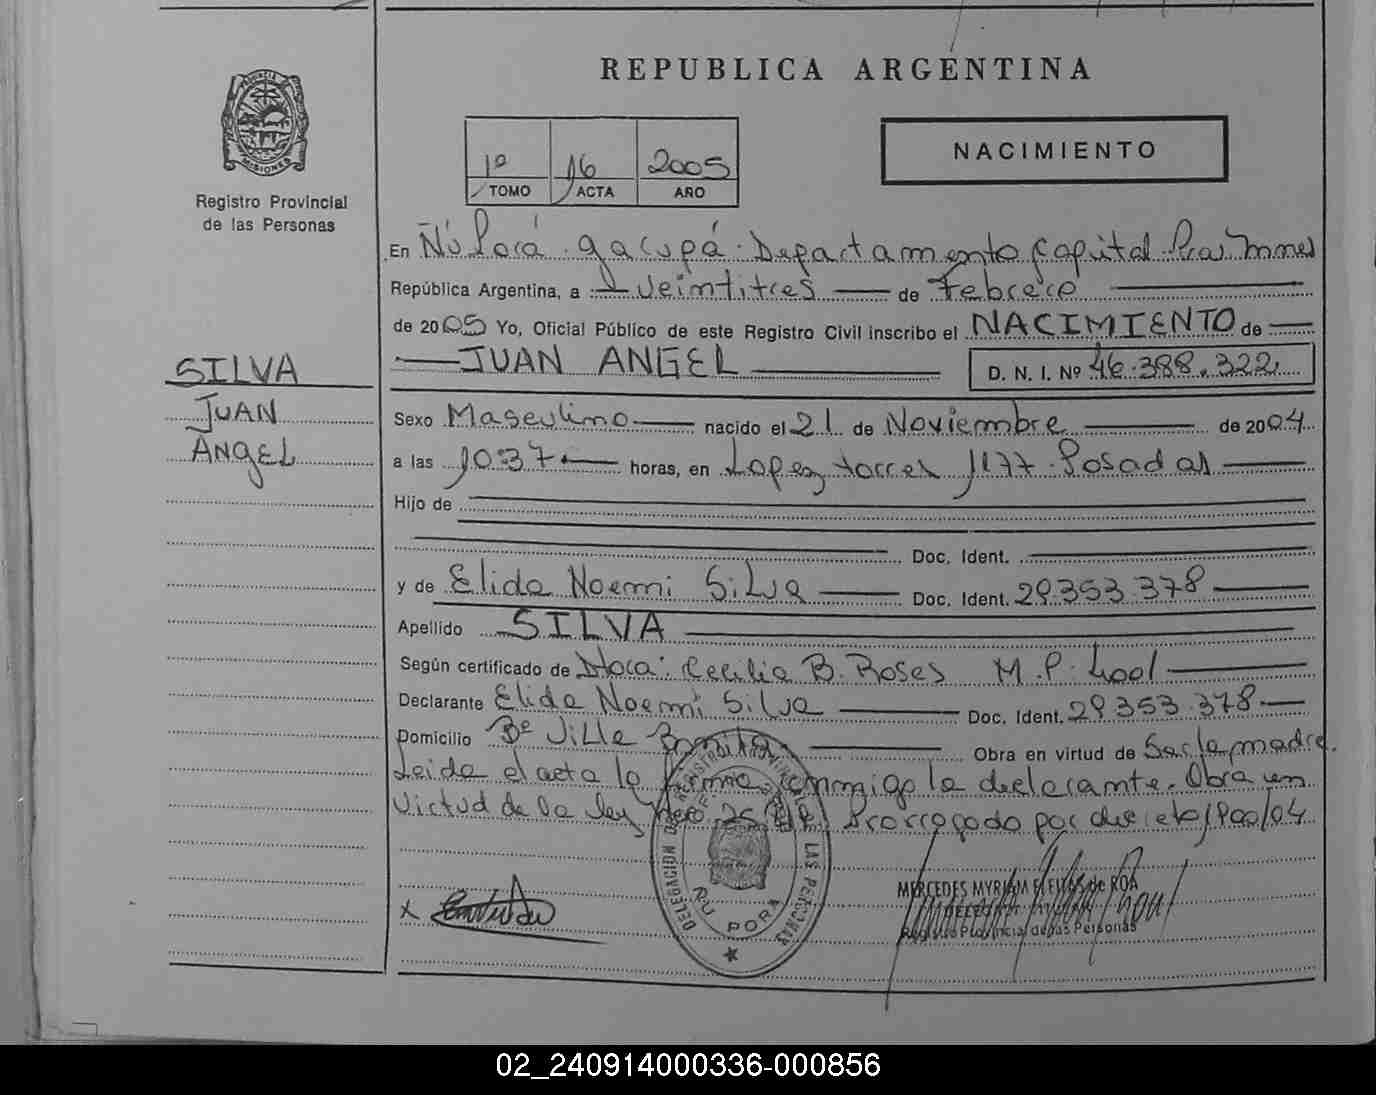 REPUBLICA ARGENTINA
PROVINCIA DE MISIONES
Registro Provincial
de las Personas
1º 16 2005
TOMO ACTA AÑO
NACIMIENTO
En Ñú Porá Garupá Departamento Capital Pcia Mnes
República Argentina, a veintitres de Febrero
de 2005 Yo, Oficial Público de este Registro Civil inscribo el NACIMIENTO de
JUAN ANGEL D. N. I. Nº 46.388.322
SILVA
JUAN
ANGEL
Sexo Masculino nacido el 21 de Noviembre de 2004
a las 10:37 horas, en Lopez torres 1177 Posadas
Hijo de
Doc. Ident.
y de Elida Noemi Silva Doc. Ident. 29.353.378
Apellido SILVA
Según certificado de Dtora: Cecilia B. Roses M.P. 4001
Declarante Elida Noemi Silva Doc. Ident. 29.353.378
Domicilio Bº Villa Bonita Obra en virtud de Ser la madre.
Leida el acta la firma conmigo la declarante. Obra en
virtud de la ley Nro 25. Prorrogado por decreto 1900/04
DELEGACION DEL REGISTRO PROVINCIAL DE LAS PERSONAS
ÑU PORA
X
MERCEDES MYRIAM FLEITAS de ROA
Registro Provincial de las Personas
02_240914000336-000856